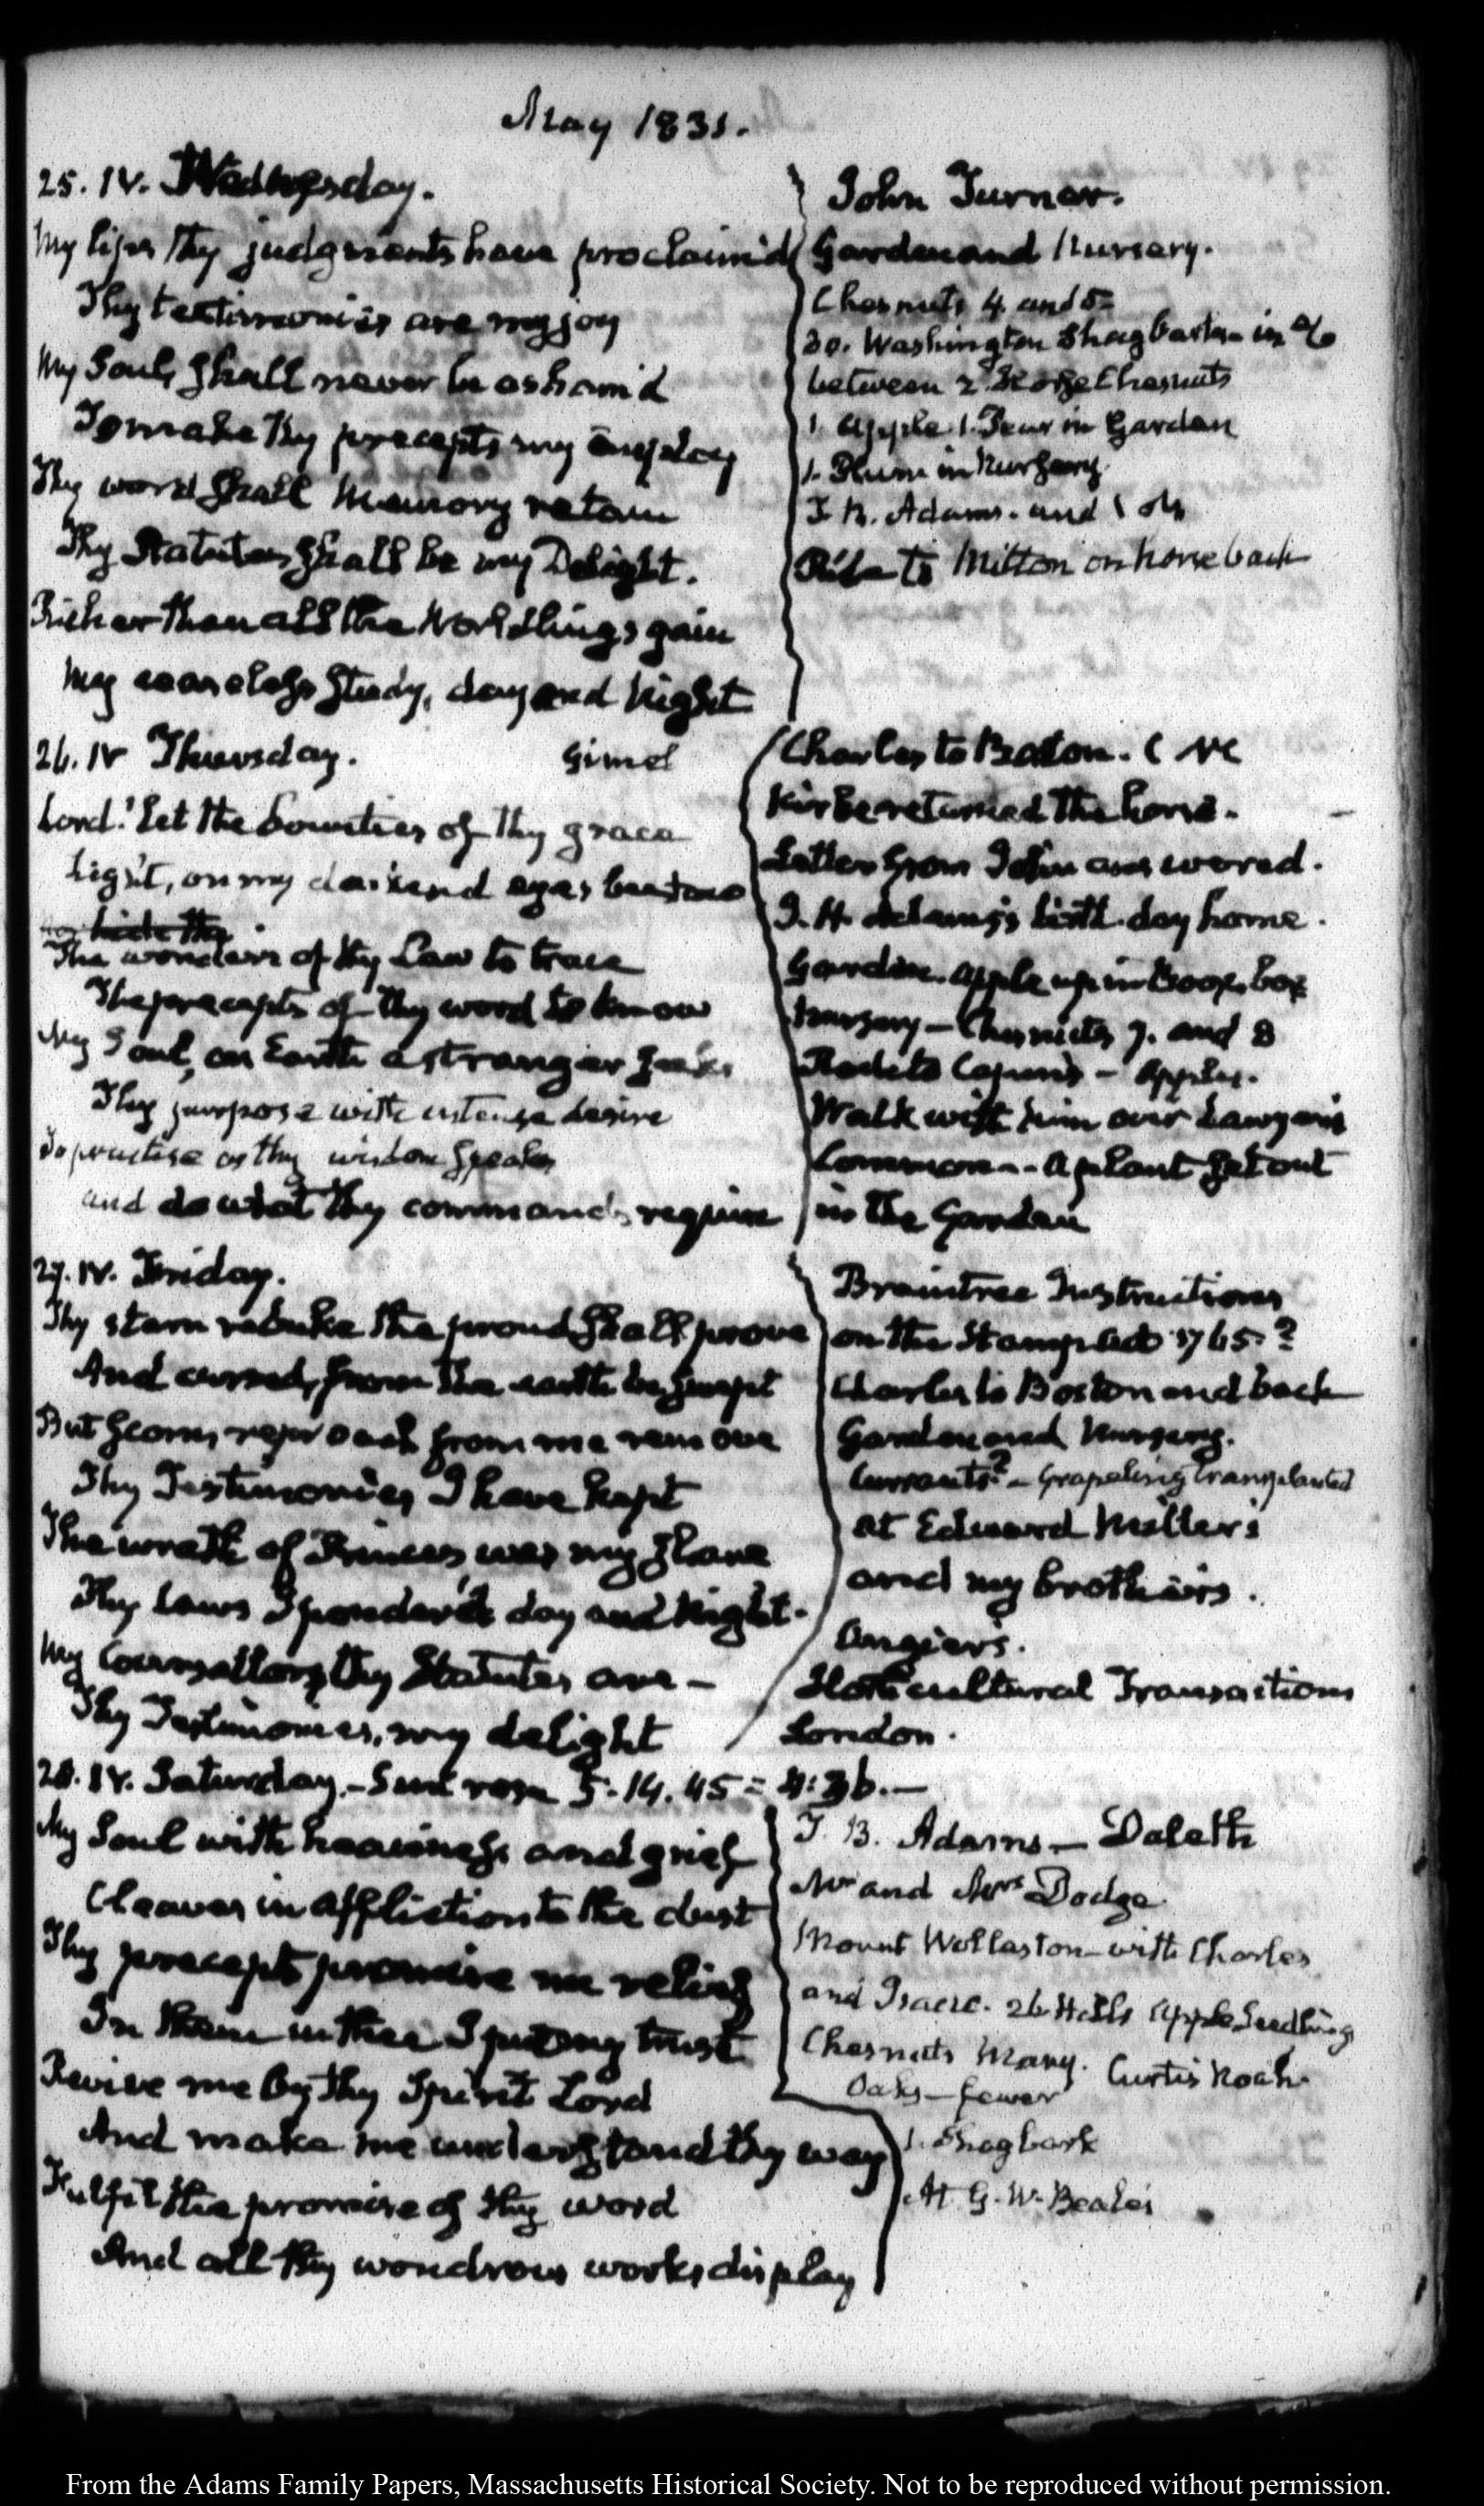 May 1831.
25. IV. Wednesday.
My lips thy judgments have proclaim'd
Thy testimonies are my joy
My Soul, shall never be asham'd
To make thy precepts my employ
Thy word shall Memory retain
Thy Statutes shall be my Delight.
Richer than all the Worldlings gain
My ceaseless study, day and Night
John Turner.
Garden and Nursery.
Chesnuts 4. and 5
20. Washington Shagbarks in
between 2 Horse Chesnuts
1. Apple 1. Pear in Garden
1. Plum in Nursery.
T. B. Adams. and
Ride to Milton on horseback
26. IV Thursday. Gimel
Lord! let the bounties of thy grace
Light, on my darkend eyes bestow
hide the
The wonders of thy Law to trace
The precepts of thy word to know
My Soul, on Earth a stranger seeks
Thy purpose with intense desire
To practise as thy wisdom speaks
and do what thy commands require
Charles to Boston.
Kirke returned the horse.
Letter from John answered.
birth day home.
Garden. Apple up in
Nursery — Chesnuts 7. and 8
Rode to Capens — Apples.
Walk with him over Lawyer's
Common — a plant set out
in the Garden
27. IV. Friday.
Thy stern rebuke the proud shall prove
And cursed, from the earth be swept
But scorn, reproach from me remove
Thy Testimonies I have kept
The wrath of Princes was my
Thy Laws I ponder'd day and Night.
My Counsellors thy Statutes are —
Thy Testimonies, my delight
Braintree Instructions
on the Stamp Act 1765.?
Charles to Boston and back
Garden and Nursery.
Currants? — Grapeling transplanted
at Edward Miller's
and my brother's.
Angier's.
Horticultural Transactions
London.
28. IV. Saturday. — Sun rose 5. 14. 45 = 4:36. —
My Soul with heaviness and grief
Cleaves in affliction to the dust
Thy precepts promise me relief
In them in thee I put my trust
Revive me by thy Spirit Lord
And make me understand thy way
Fulfil the promise of thy word
And all thy wondrous works display
T. B. Adams — Daleth
Mr and Mrs Dodge
Mount Wollaston — with Charles
and Isaac. 26 Hills Apple Seedlings
Chesnuts Many. Curtis Noah
Oaks — fewer
1. Shagbark
At G. W. Beale's
From the Adams Family Papers, Massachusetts Historical Society. Not to be reproduced without permission.